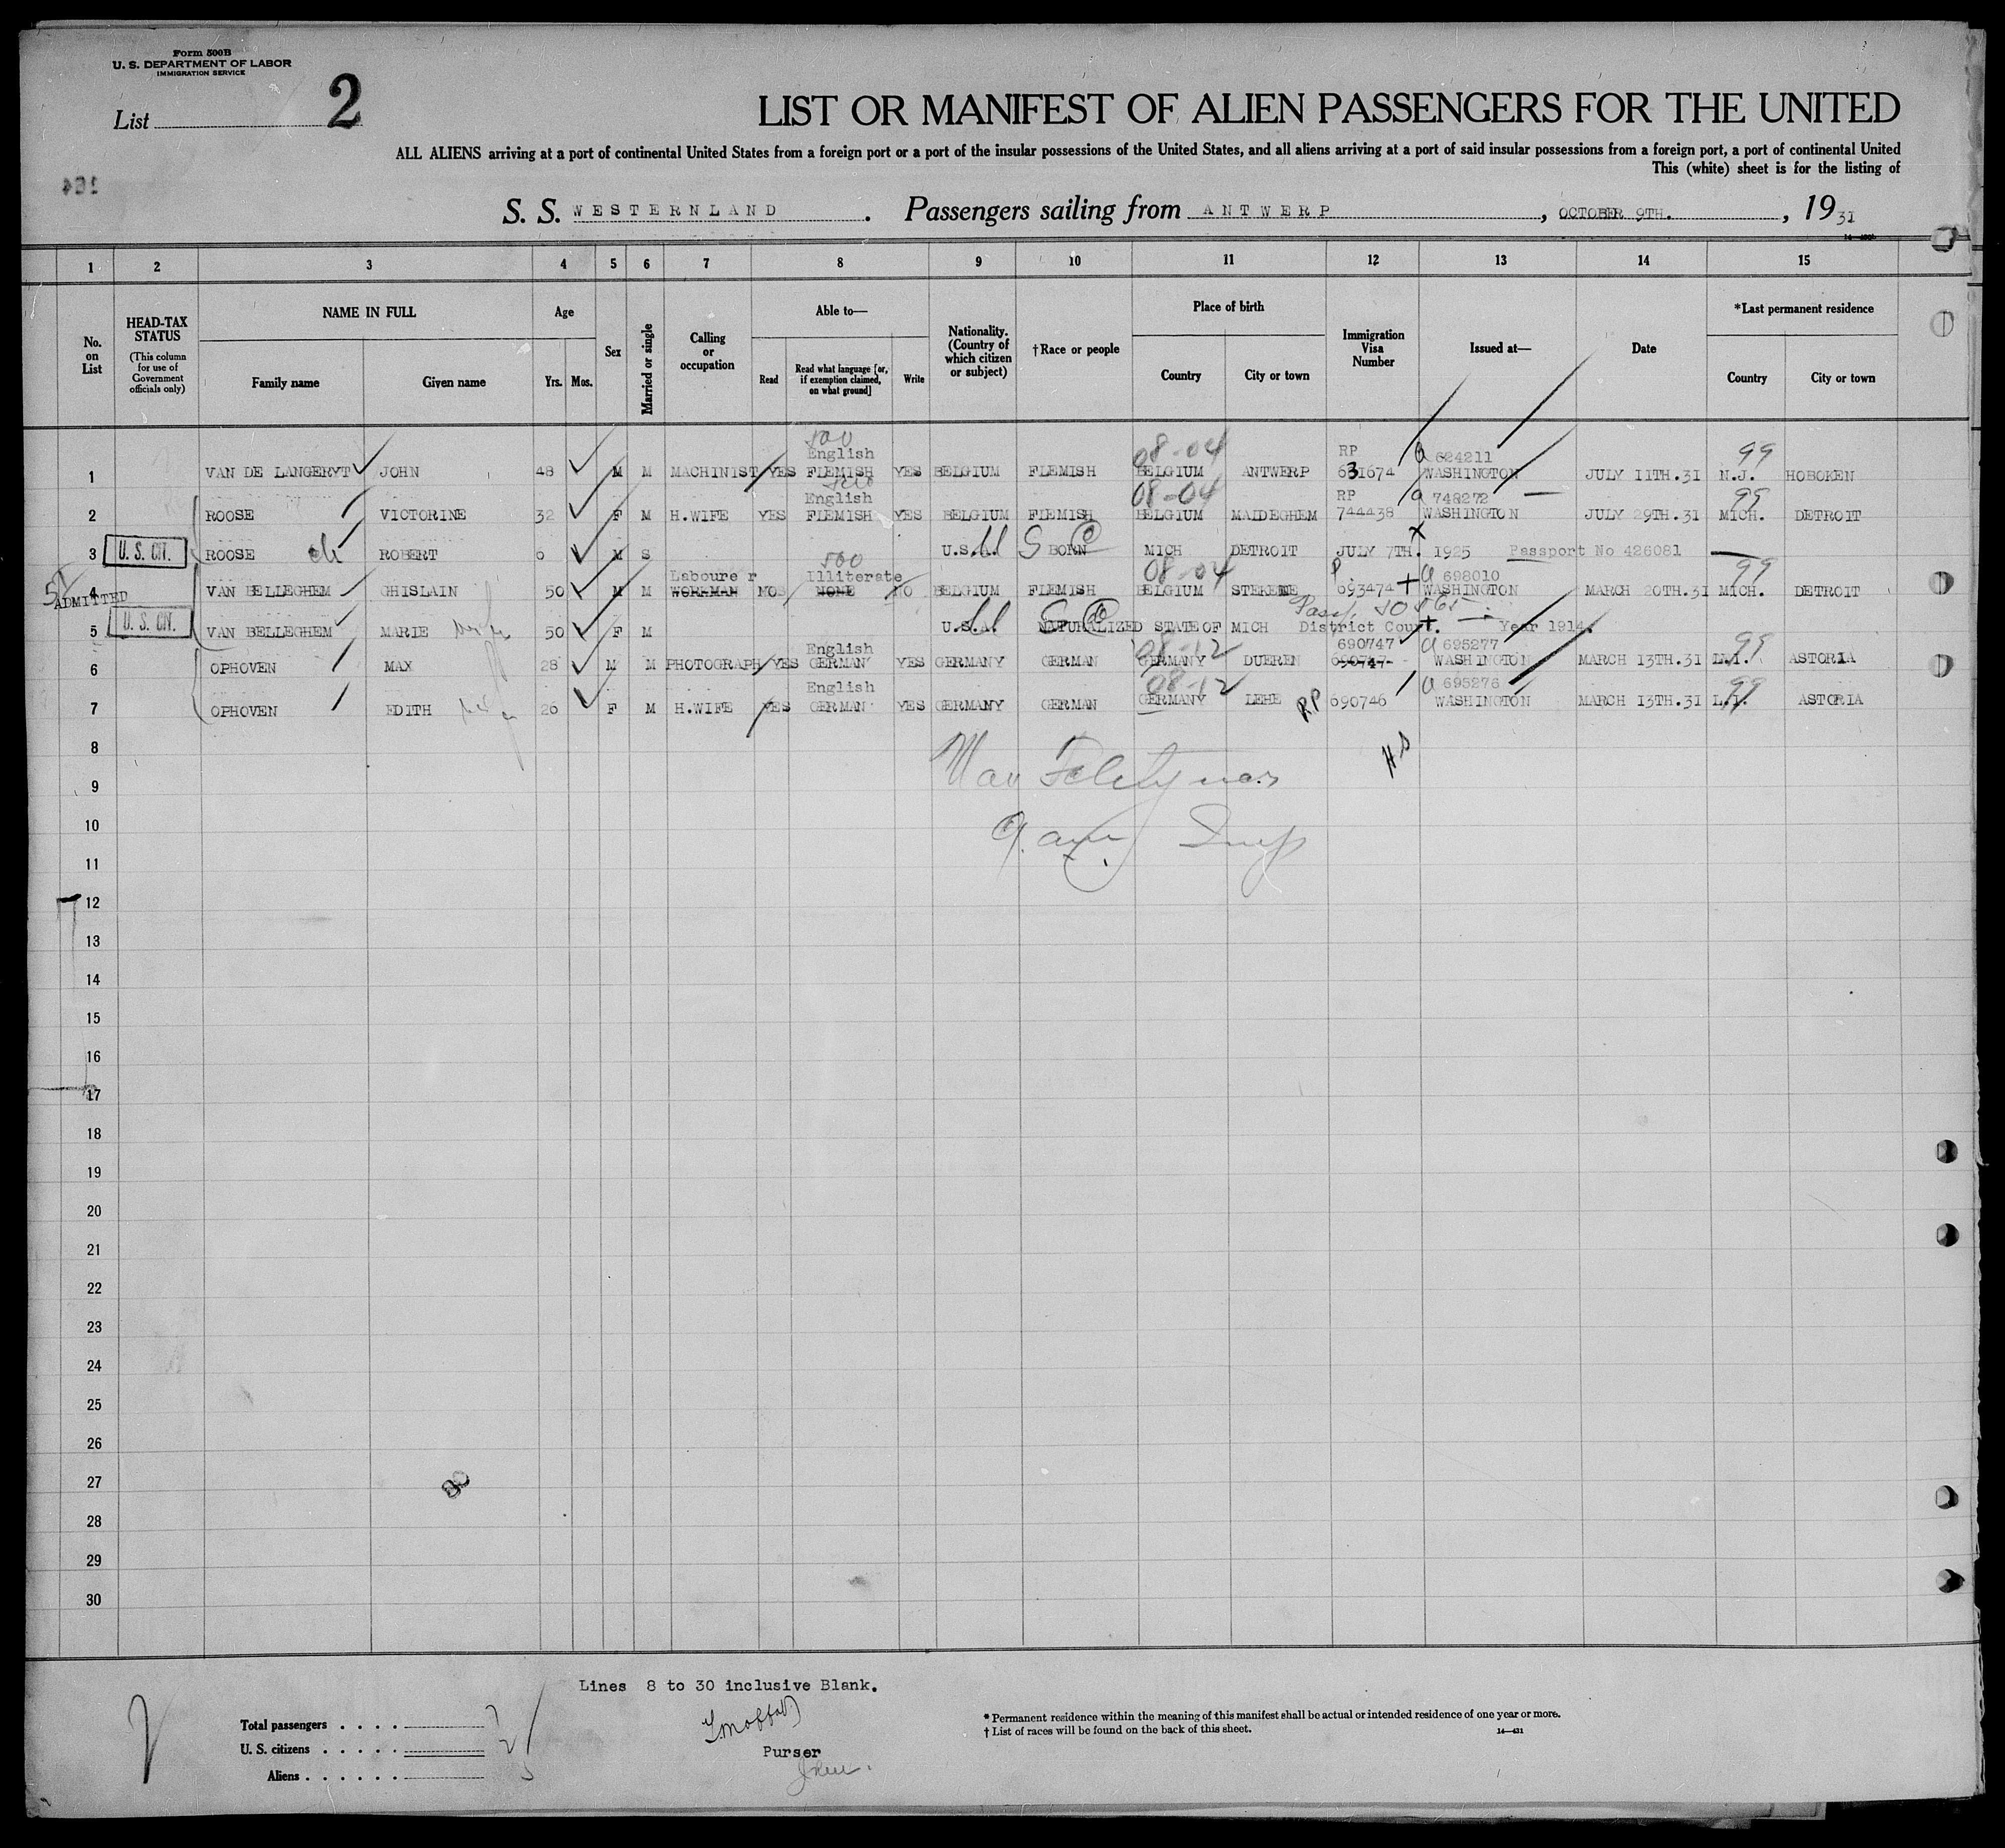 Form 500B
U. S. DEPARTMENT OF LABOR
IMMIGRATION SERVICE
List 2
LIST OR MANIFEST OF ALIEN PASSENGERS FOR THE UNITED
ALL ALIENS arriving at a port of continental United States from a foreign port or a port of the insular possessions of the United States, and all aliens arriving at a port of said insular possessions from a foreign port, a port of continental United
This (white) sheet is for the listing of
164
S. S. WESTERNLAND. Passengers sailing from ANTWERP, OCTOBER 9TH., 1931
1 2 3 4 5 6 7 8 9 10 11 12 13 14 15
No. on List
HEAD-TAX STATUS
(This column for use of Government officials only)
NAME IN FULL
Family name Given name
Age
Yrs. Mos.
Sex
Married or single
Calling or occupation
Able to—
Read
Read what language [or, if exemption claimed, on what ground]
Write
Nationality. (Country of which citizen or subject)
†Race or people
Place of birth
Country City or town
Immigration Visa Number
Issued at—
Date
*Last permanent residence
Country City or town
500 English 08-04 RP a 624211 99
1 VAN DE LANGERYT JOHN 48 M M MACHINIST YES FLEMISH YES BELGIUM FLEMISH BELGIUM ANTWERP 631674 WASHINGTON JULY 11TH.31 N.J. HOBOKEN
500 English 08-04 RP a 748272 99
2 ROOSE VICTORINE 32 F M H.WIFE YES FLEMISH YES BELGIUM FLEMISH BELGIUM MALDEGHEM 744438 WASHINGTON JULY 29TH.31 MICH. DETROIT
3 U. S. CIT. ROOSE ch ROBERT 6 M S U.S.A. BORN MICH DETROIT JULY 7TH. 1925 Passport No 426081
500 Labourer Illiterate 08-04 P. a 698010 99
4 ADMITTED VAN BELLEGHEM GHISLAIN 50 M M WORKMAN NO NONE NO BELGIUM FLEMISH BELGIUM STEKENE 693474 WASHINGTON MARCH 20TH.31 MICH. DETROIT
5 U. S. CIT. VAN BELLEGHEM MARIE 50 F M U.S.A. NATURALIZED STATE OF MICH District Court. Year 1914.
English 08-12 690747 a 695277 99
6 OPHOVEN MAX 28 M M PHOTOGRAPH YES GERMAN YES GERMANY GERMAN GERMANY DUEREN 690747 WASHINGTON MARCH 13TH.31 L.I. ASTORIA
English 08-12 a 695276 99
7 OPHOVEN EDITH 26 F M H.WIFE YES GERMAN YES GERMANY GERMAN GERMANY LEHE RP 690746 WASHINGTON MARCH 13TH.31 L.I. ASTORIA
8
9
10
11
12
13
14
15
16
17
18
19
20
21
22
23
24
25
26
27
28
29
30
Lines 8 to 30 inclusive Blank.
Total passengers . . . . 7
U. S. citizens . . . . . 2
Aliens . . . . . . 5
Purser
* Permanent residence within the meaning of this manifest shall be actual or intended residence of one year or more.
† List of races will be found on the back of this sheet.
14—431